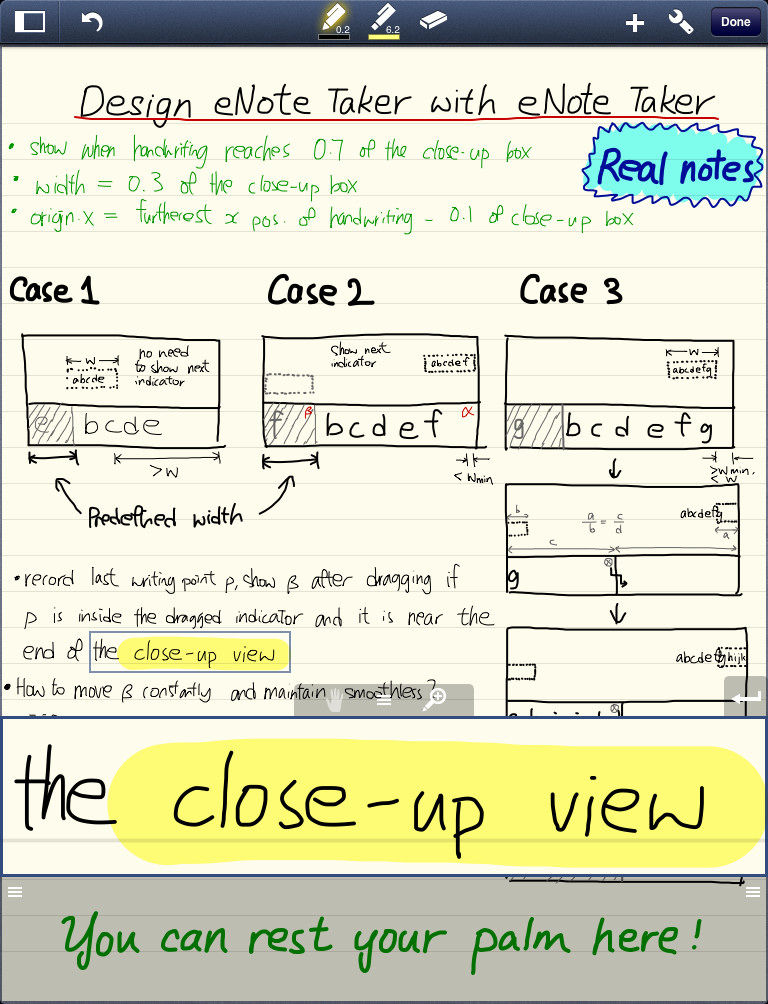 0.2
6.2
Done
Design eNote Taker with eNote Taker
• show when handwriting reaches 0.7 of the close-up box
• width = 0.3 of the close-up box
• origin.x = furtherest x pos. of handwriting - 0.1 of close-up box
Real notes
Case 1
Case 2
Case 3
w
abcde
no need
to show next
indicator
e
bcde
> w
Show next
indicator
abcdef
f
β
bcdef
α
< wmin
w
abcdefg
g
bcdefg
> wmin.
< w
Predefined width
b
a/b = c/d
abcdefg
a
c
g
h
abcdefghijk
• record last writing point p, show β after dragging if
p is inside the dragged indicator and it is near the
end of the close-up view
• How to move β constantly and maintain smoothless?
the close-up view
You can rest your palm here!